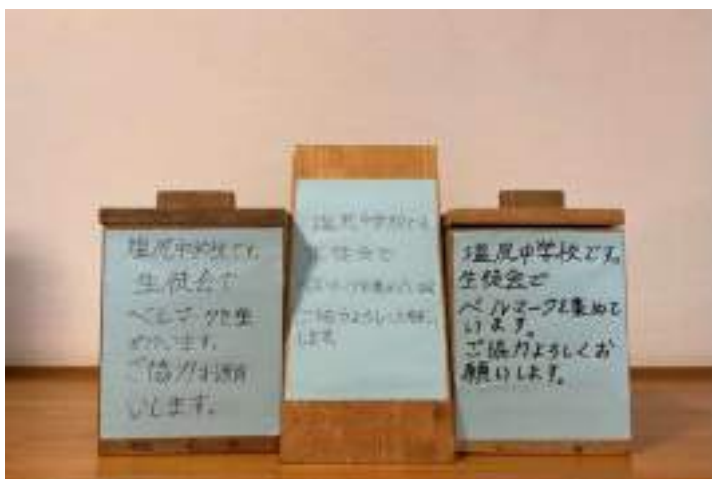 塩尻中学校です。
生徒会で
ベルマークを集
めています。
ご協力お願
いします。
塩尻中学校です
生徒会で
ベルマークを集めています
ご協力よろしくお願い
します
塩尻中学校です。
生徒会で
ベルマークを集めて
います。
ご協力よろしくお
願いします。